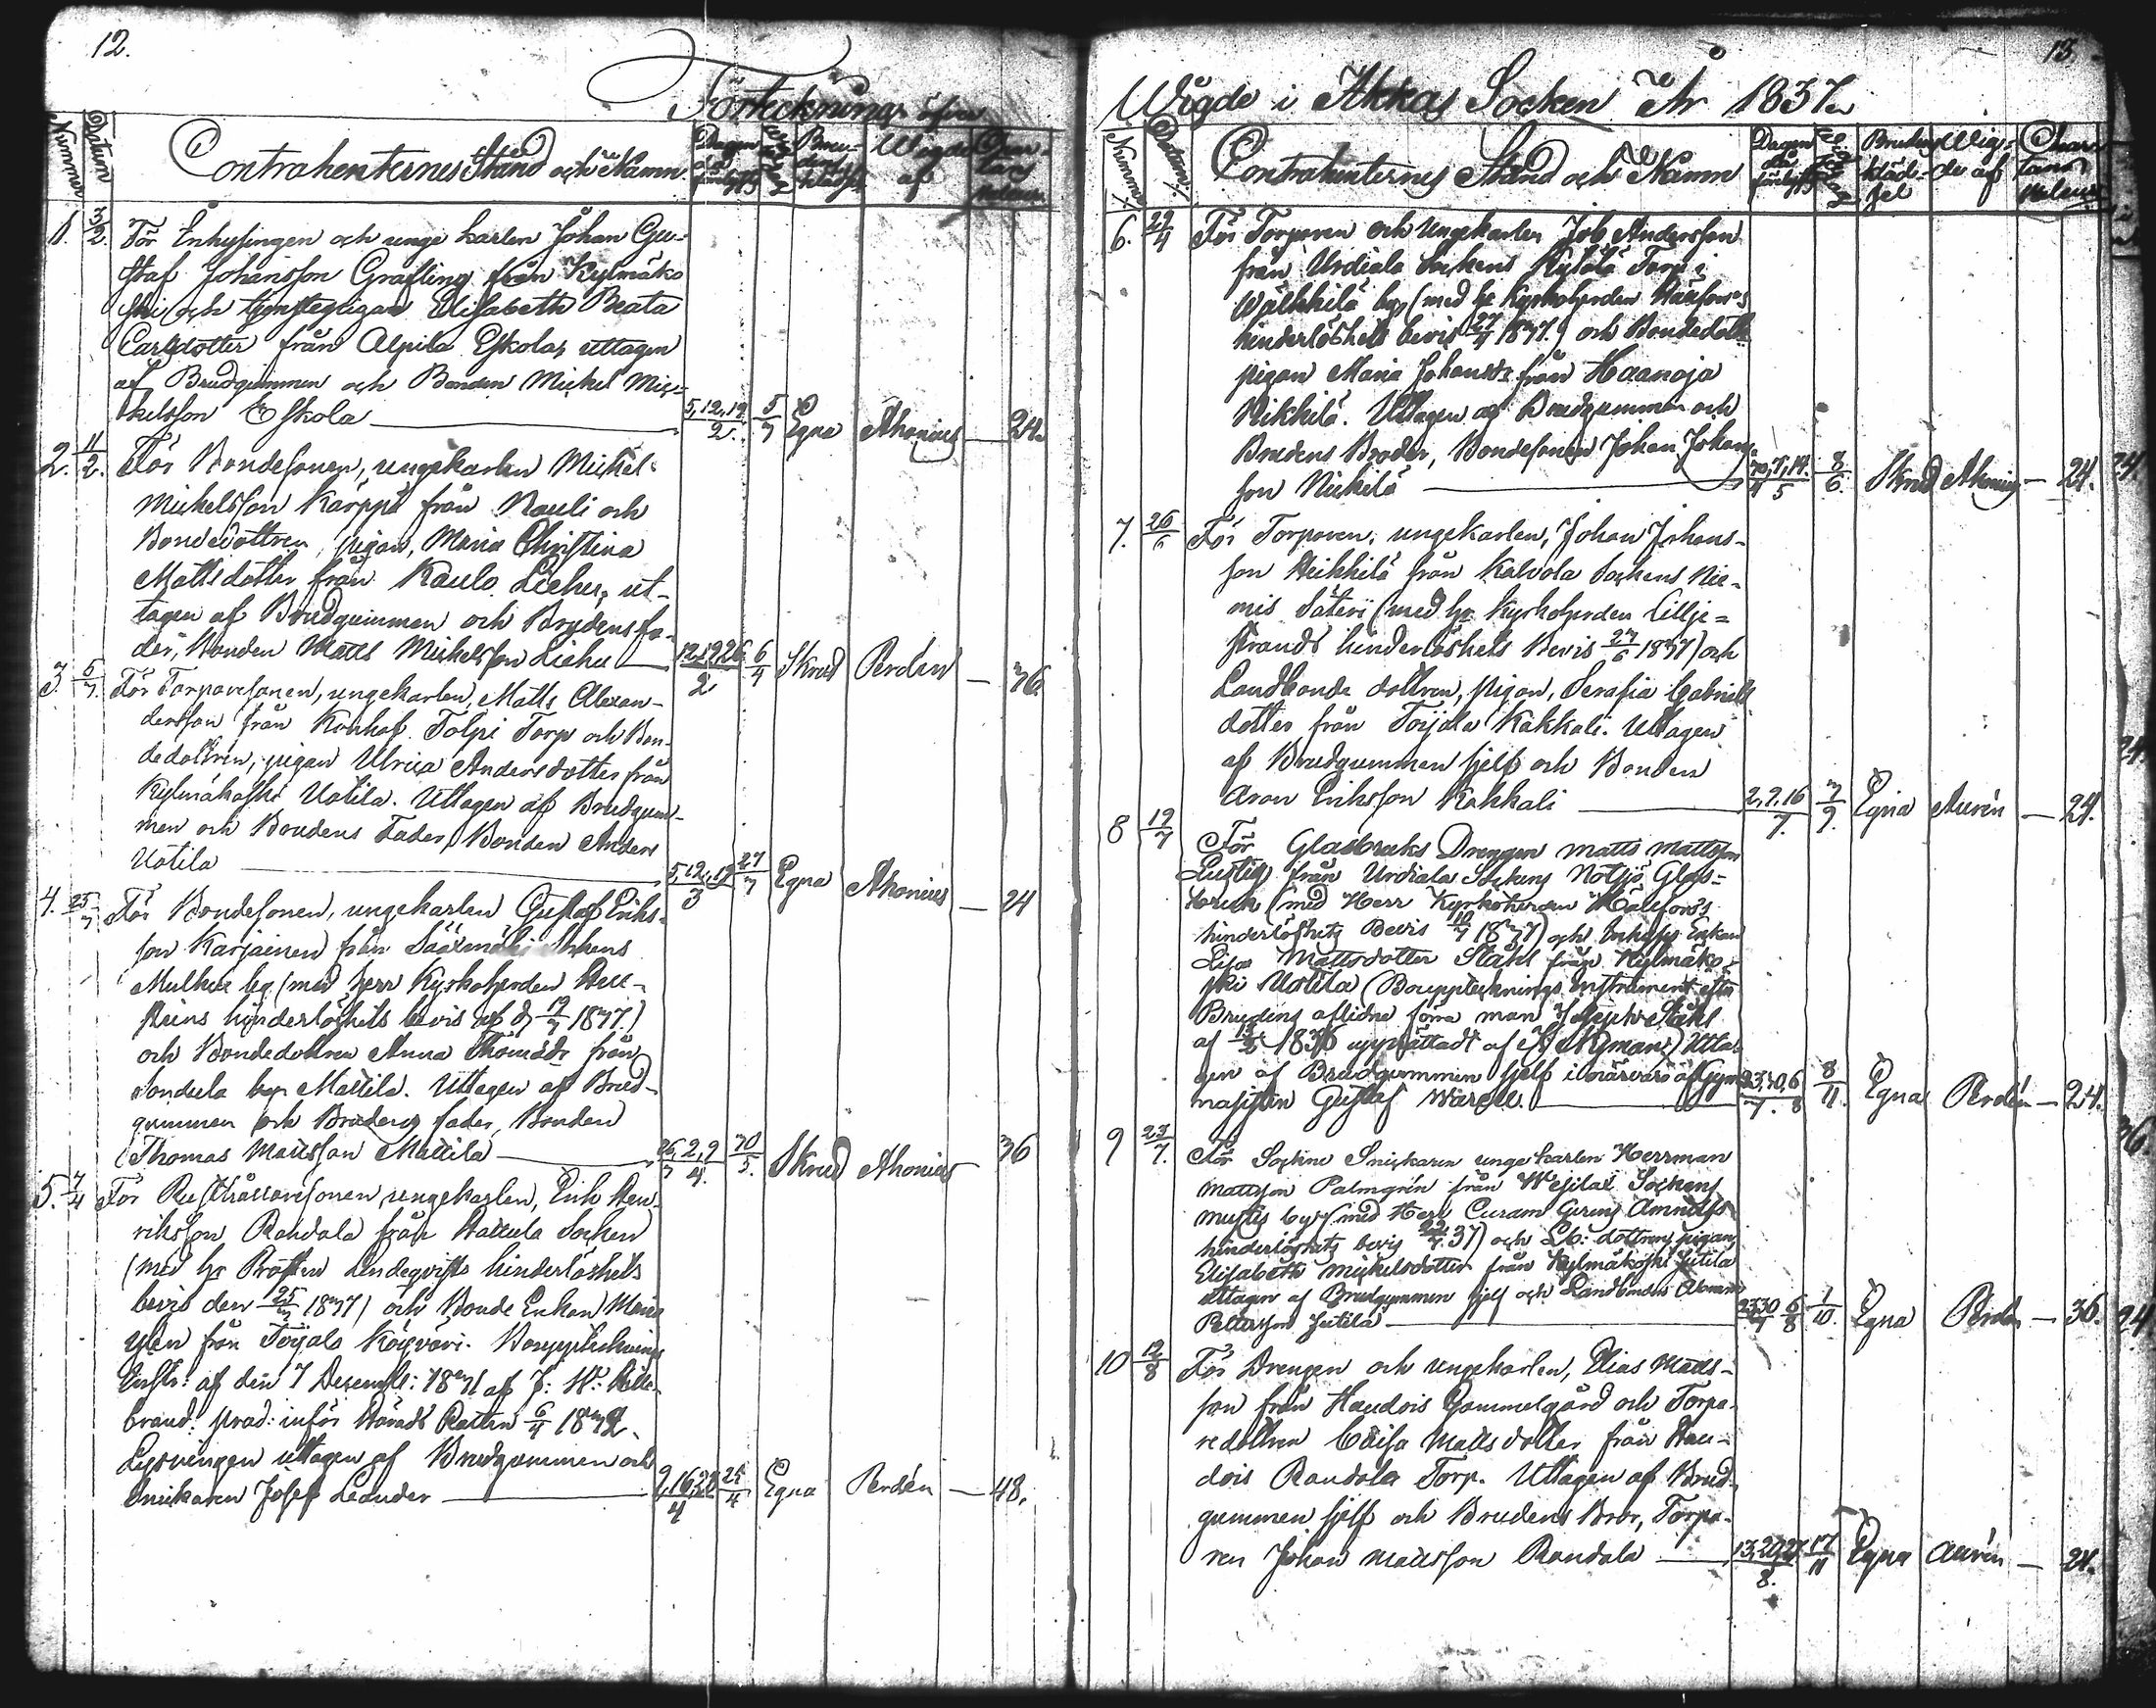 12.
Förteckning öfver
Nummer
Datum
Contrahenternes Stånd och Namn
Dagen då
Brudens klädsel
Wigde af
1. 3/2. För Inhysingen och unge karlen Johan Gu-
staf Johansson Grafling från Kylmäko
ski och tjenstepigan Elisabeth Beata
Carlsdotter från Alpila Eskolas uttagen
af Brudgummen och Bonden Mickel Mic-
kelsson Eskola 5,12,19/2. 5/3 Egna Ahonius — 24.
2. 11/2. För Bondesonen, ungekarlen Mickel
Mickelsson Karppi från Nauli och
Bondedottren, pigan, Maria Christina
Mattsdotter från Kaulo Liehu, ut-
tagen af Brudgummen och Brudens fa-
der, Bonden Matts Mickelsson Liehu 12,19,26/2 6/4 Skrud Perdén — 36.
3. 5/3. För Torparesonen, ungekarlen, Matts Alexan-
dersson från Konhof. Tolpi Torp och Bon-
dedottren, pigan Ulrica Andersdotter från
Kylmäkoski Uotila. Uttagen af Brudgum-
men och Brudens Fader, Bonden Anders
Uotila 5,12,19/3 27/3 Egna Ahonius — 24
4. 25/3 För Bondesonen, ungekarlen Gustaf Eriks-
son Karjainen från Sääxmäki Sockens
by (med Herr Kyrkoherden Hell-
steins hinderlöshets bevis af d. 19/3 1837.)
och Bondedottren Anna Thomasdr från
Sontula by Mattila. Uttagen af Brud-
gummen och Brudens fader, Bonden
Thomas Mattsson Mattila 26,2,9/3 4. 30/5. Skrud Ahonius 36
5. 7/4 För ungekarlen, Erik Hen-
riksson Randala från Hattula Socken
(med hr Prosten Lindeqvists hinderlöshets
bevis den 25/3 1837) och Bonde Enkan Maria
från Toijala Köyväri. Boupptecknings
Instr: af den 7 Decemb: 1831 af J: W: Hille-
brand: prod: inför Härads Rätten 6/4 1832.
Lysningen uttagen af Brudgummen och
Snickaren Josef Leander 9,16,23/4 25/4 Egna Perdén — 48.
13.
Wigde i Akkas Socken År 1837.
Nummer
Datum
Contrahenternes Stånd och Namn
Dagen då
Brudens kläd-sel
Wig-de af
6. 22/4 För Torparen och Ungekarlen Job Andersson
från Urdiala Sockens Kylälä Torp i
Wälkkilä by (med hr Kyrkoherden Hällfors's
hinderlöshets bevis 27/4 1837.) och Bondedott
pigan Maria Johansdr från Haanoja
Nikkilä. Uttagen af Brudgummen och
Brudens Broder, Bondesonen Johan Johans-
son Nickilä 30,7,14./4 5 8/6. Skrud Ahonius — 24.
7. 26/6 För Torparen, ungekarlen, Johan Johans-
son Heikkilä från Kalvola Sockens Nie-
mis Säteri (med hr Kyrkoherden Lillje-
strands hinderlöshets Bevis 27/6 1837) och
Landbonde dottren, pigan, Serafia Gabriels
dotter från Toijala Kakkali. Uttagen
af Brudgummen sjelf och Bonden
Aron Eriksson Kakkali 2,9,16/7. 3/9. Egna Aurén — 24.
8 19/7 För Glasbruks Drengen Matts Mattsson
Lustig från Urdiala Sockens Notsjö Glas-
bruk (med Herr Kyrkoherden Hällfors's
hinderlöshets Bevis 10/7 1837) och Inhyses Enkan
Lisa Mattsdotter Ståhl från Kylmäko-
ski Uotila (Bouppteknings Instrument efter
Brudens aflidne förra man Ståhl
af 1836 upprättadt af Nyman) Utta-
gen af Brudgummen sjelf i närvaro af Gym-
nasisten Gustaf 23,30,6/7. 8 8/11. Egna Perdén — 24.
9 23/7. För Sockne Snickaren unge karlen Herrman
Mattsson Palmgrén från Wesilax Sockens
by (med Herr
hinderlöshets bevis 22/7 37) och Lb: dottren, pigan
Elisabeth Mickelsdotter från Kylmäkoski Jutila
uttagen af Brudgummen sjelf och Landbonden
Pettersson Jutila 23,30 6/7 8 1/10. Egna Perdén — 36.
10 12/8 För Drengen och ungekarlen, Elias Matts-
son från Haudois Gammelgård och Torpa-
redottren Caisa Mattsdotter från Hau-
dois Randala Torp. Uttagen af Brud-
gummen sjelf och Brudens Bror, Torpa-
ren Johan Mattsson Randala 13,20,27/8. 17/11 Egna Aurén — 24.